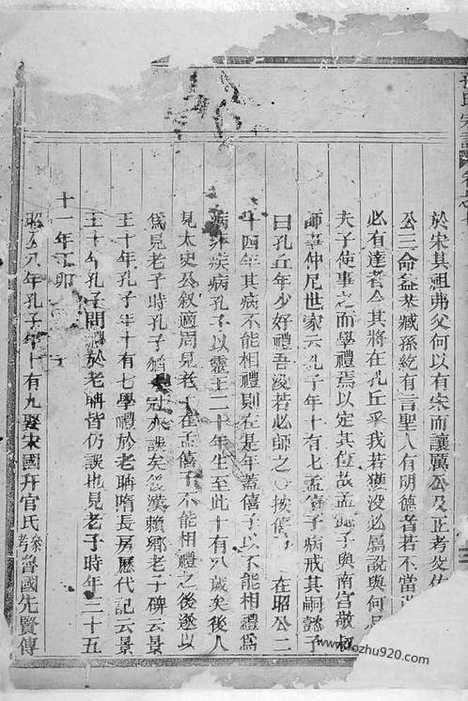 於宋其祖弗父何以有宋而讓厲公及正考父佐
公三命益恭臧孫紇有言聖人有明德者若不當
必有達者今其將在孔丘乎我若獲没必屬說與何
夫子使事之而學禮焉以定其位故孟懿子與南宮敬叔
師事仲尼世家云孔子年十有七孟釐子病誡其嗣懿子
曰孔丘年少好禮吾没若必師之○按僖 在昭公二
十四年其病不能相禮則在是年蓋僖子以不能相禮為
病非疾病孔子以靈王二十年生至此十有八歲矣後人
見太史公敘適周見老子在孟僖子不能相禮之後遂以
為見老子時孔子 冠矣誤矣後漢賴鄉老子碑云景
王十年孔子年十有七學禮於老聃隋長房歷代記云景
王十年孔子問禮於老聃皆仍誤也見老子時年三十五
十一年丁卯
昭公八年孔子年十有九娶宋國幵官氏
魯國先賢傳
www.ozhu920.com